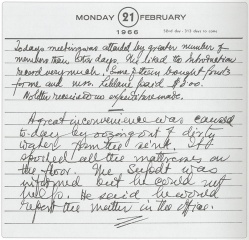 MONDAY 21 FEBRUARY
1966
Today's meeting was attended by greater number of
members than other days. They liked to information
record very much. Some of them bought foods
for me and Mrs. paid $200.
No letter received so as expected were made.
A great inconvenience was caused
to-day by oozing out of dirty
water from the sink. It
spoiled all the mattresses on
the floor. The Supdt was
informed but he could not
help. He said he would
report the matter in the office.